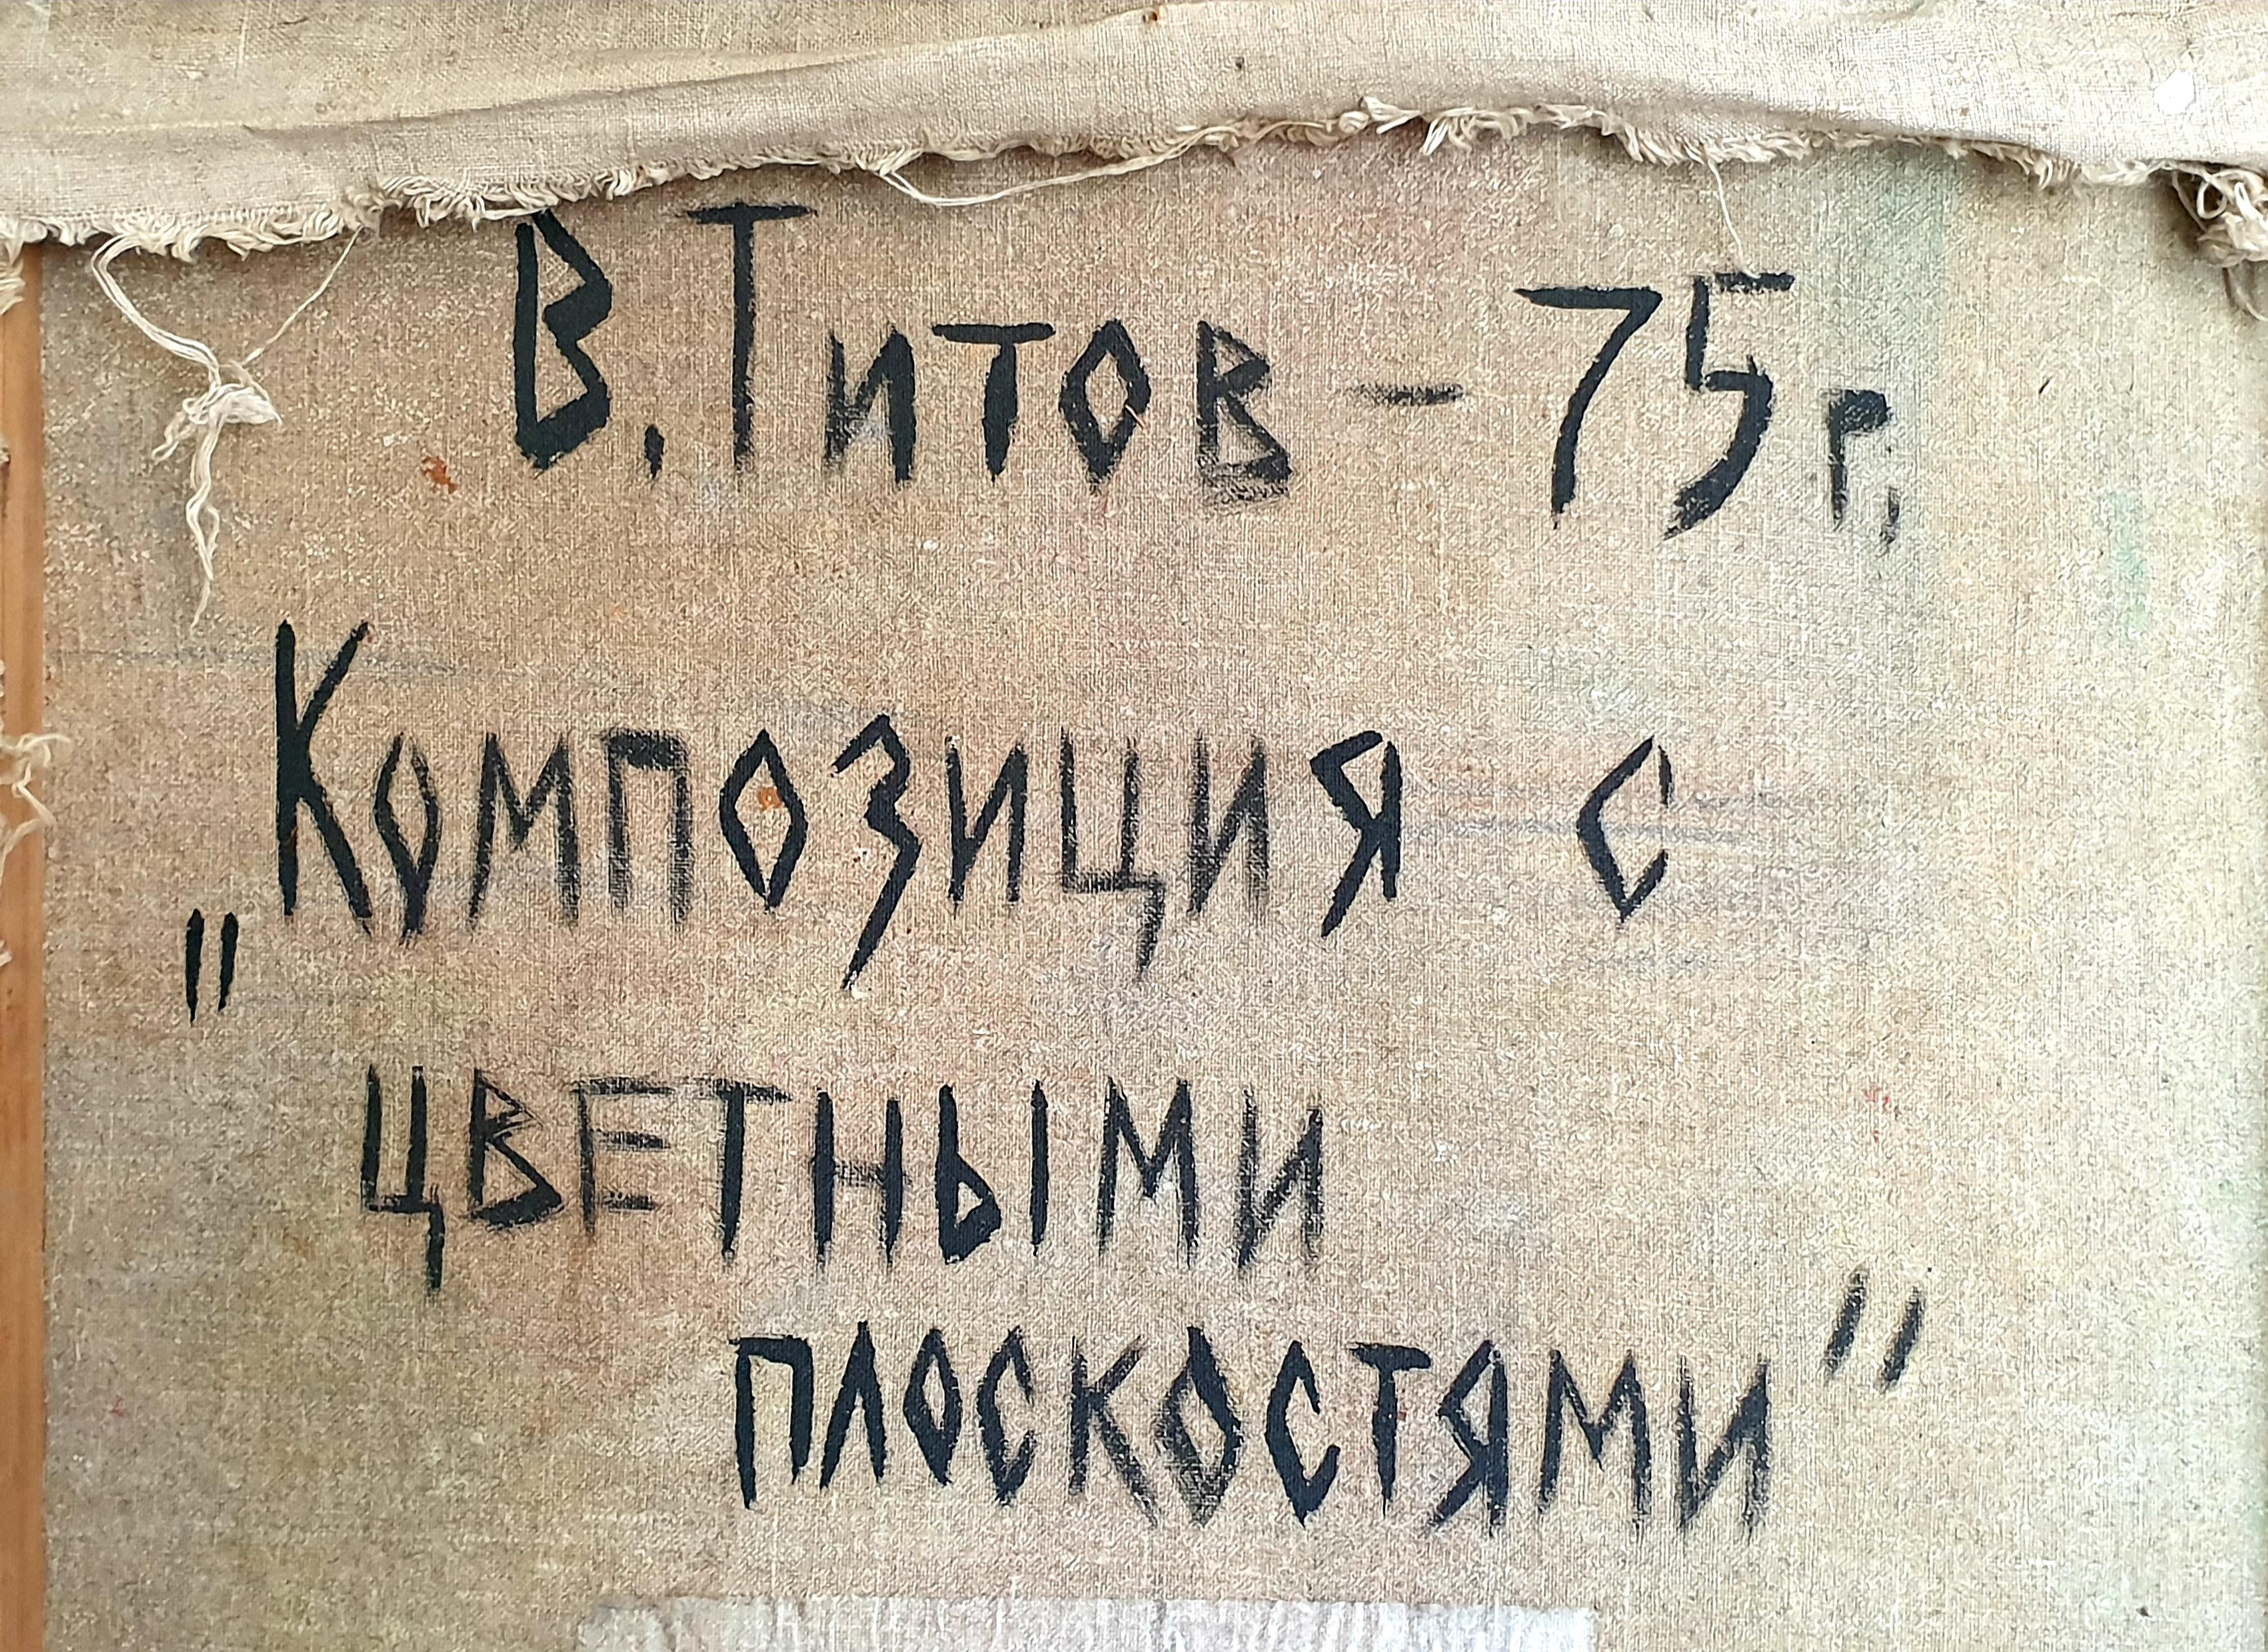 В. Титов – 75 г.
„Композиция с
цветными
плоскостями"